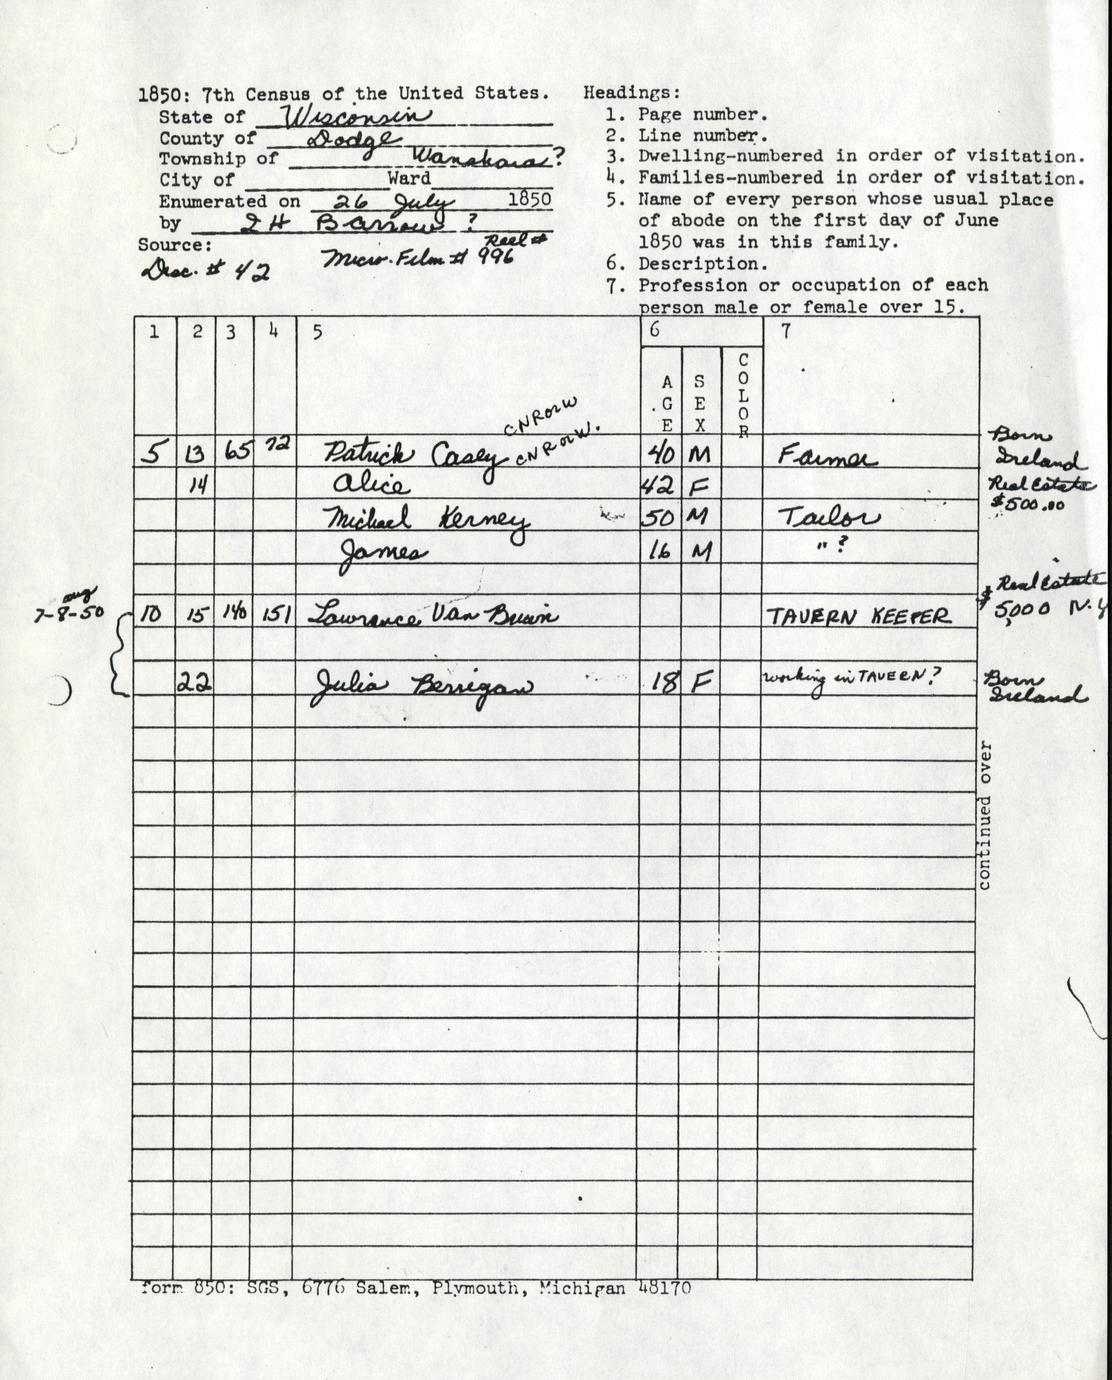 1850: 7th Census of the United States.
State of Wisconsin
County of Dodge
Township of Waushara?
City of Ward
Enumerated on 26 July 1850
by I H Barrow ?
Source: Reel #
Doc. # 42 Micro-Film # 996
Headings:
1. Page number.
2. Line number.
3. Dwelling-numbered in order of visitation.
4. Families-numbered in order of visitation.
5. Name of every person whose usual place
of abode on the first day of June
1850 was in this family.
6. Description.
7. Profession or occupation of each
person male or female over 15.
1 2 3 4 5 6 7
AGE SEX COLOR
CNROLW
5 13 65 72 Patrick Casey CNROLW. 40 M Farmer Born Ireland
14 Alice 42 F Real Estate $500.00
Michael Kerney 50 M Tailor
James 16 M " ?
aug
7-8-50 10 15 140 151 Lawrance Van Bruin TAVERN KEEPER $ Real Estate 5,000 N.Y
22 Julia Berrigan 18 F working in TAVERN? Born Ireland
continued over
form 850: SGS, 6776 Salem, Plymouth, Michigan 48170